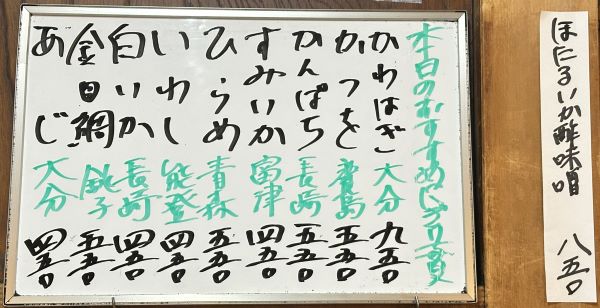 ほたるいか酢味噌 八五〇
本日のおすすめにぎり一貫
かわはぎ 大分 九五〇
かつを 五五〇
かんぱち 長崎 五五〇
すみいか 富津 四五〇
ひらめ 青森 五五〇
いわし 能登 四五〇
白いか 長崎 四五〇
金目鯛 銚子 五五〇
あじ 大分 四五〇